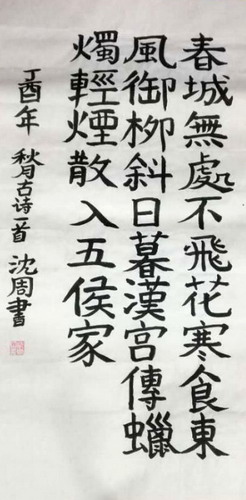 春城無處不飛花寒食東
風御柳斜日暮漢宮傳蠟
燭輕煙散入五侯家
丁酉年 秋月古诗一首 沈周書